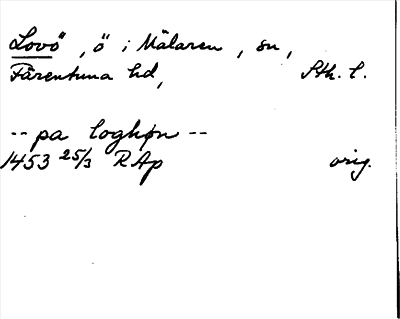 Lovö, ö i Mälaren, sn,
Färentuna hd, Sth. l.
-- pa loghøn --
1453 25/3 RAp orig.